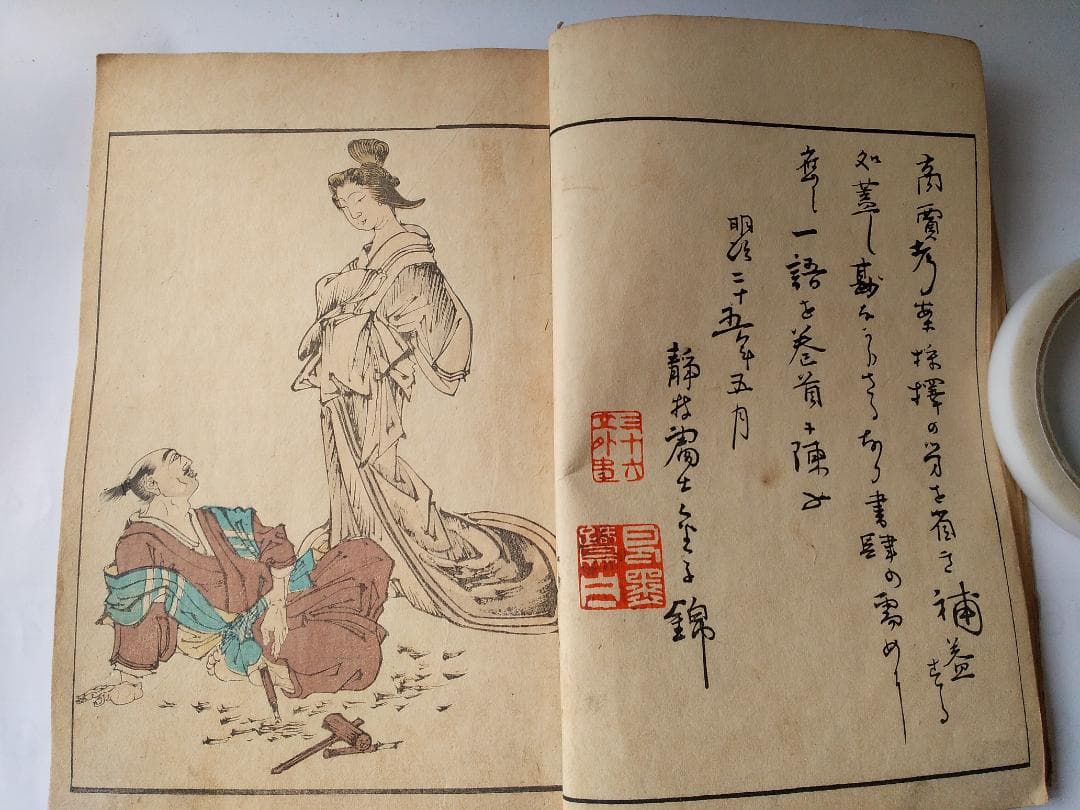 商賈考案採擇の労を省き補益する
処蓋し尠なからさるあり書肆の需めに
應し一語を巻首に陳ふ
明治二十五年五月
士金子錦
三十六